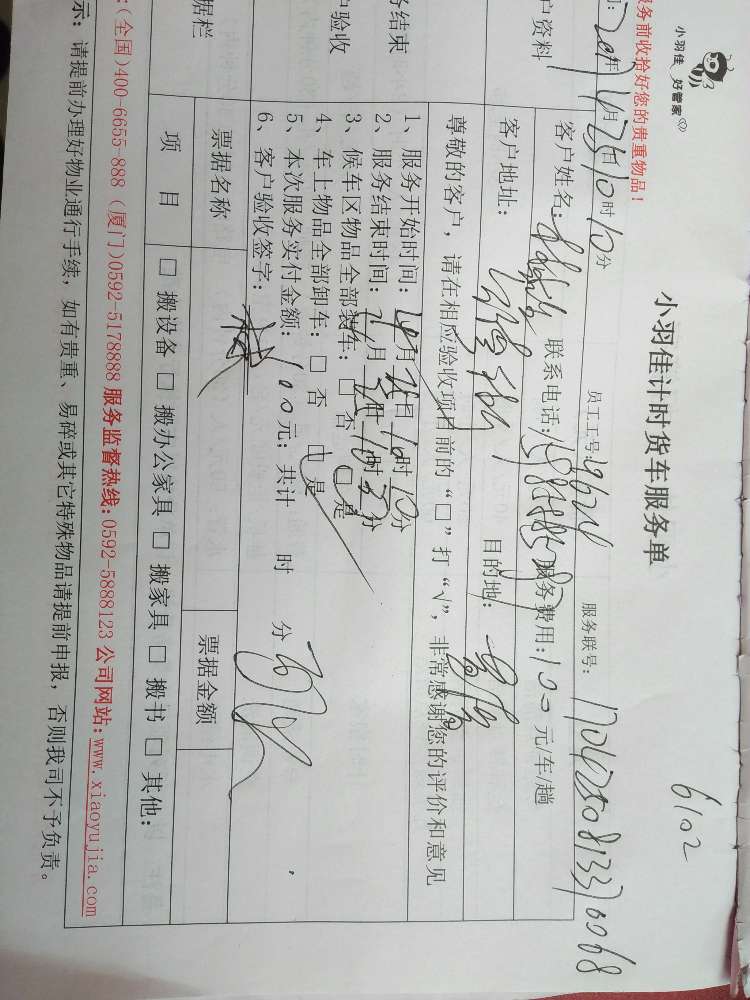 小羽佳 好管家
6102
小羽佳计时货车服务单
服务前收拾好您的贵重物品!
2017年4月25日10时10分 员工工号:9624 服务联号:
户资料 客户姓名: 联系电话: 服务费用:100元/车/趟
客户地址: 目的地:
尊敬的客户,请在相应验收项目前的“□”打“√”,非常感谢您的评价和意见
务结束
户验收
1、服务开始时间:4月25日10时10分
2、服务结束时间: 月 日 时 分
3、候车区物品全部装车:□否 □是
4、车上物品全部卸车:□否 □是
5、本次服务实付金额:100元;共计 时 分
6、客户验收签字:
据栏 票据名称 票据金额
项 目 □搬设备 □搬办公家具 □搬家具 □搬书 □其他:
:(全国)400-6655-888 (厦门)0592-5178888 服务监督热线:0592-5888123 公司网站:www.xiaoyujia.com
示:请提前办理好物业通行手续,如有贵重、易碎或其它特殊物品请提前申报,否则我司不予负责。